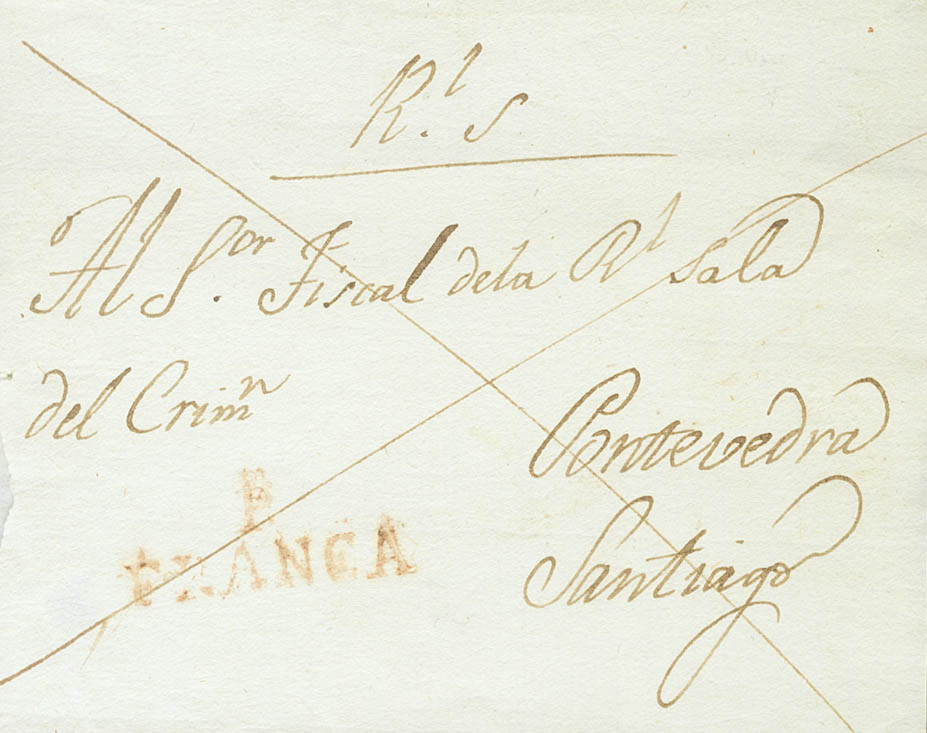 R.l S
Al S.or Fiscal dela Rl Sala
del Crimn
Pontevedra
Santiago
FRANCA